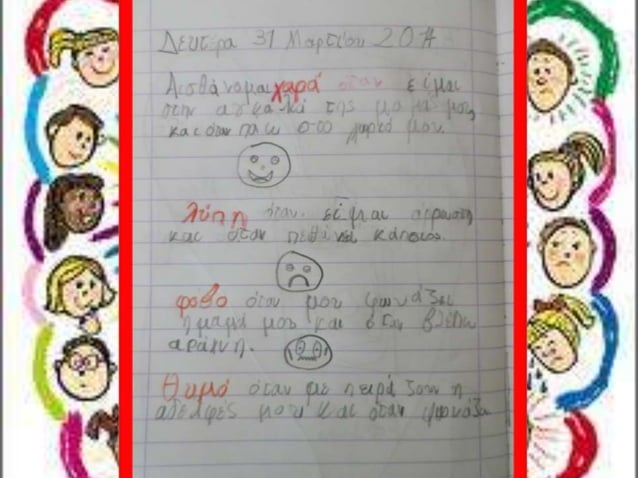 Δευτέρα 31 Μαρτίου 201
Αισθάνομαι χαρά όταν είμαι
στην αγκαλιά της μαμάς μου
και όταν πάω στο χωριό μου.
λύπη όταν είμαι άρρωστη
και όταν πεθάνει κάποιος.
φόβο όταν μου φωνάζει
η μαμά μου και όταν βλέπω
αράχνη.
θυμό όταν με πειράζουν η
αδελφές μου και όταν φωνάζω